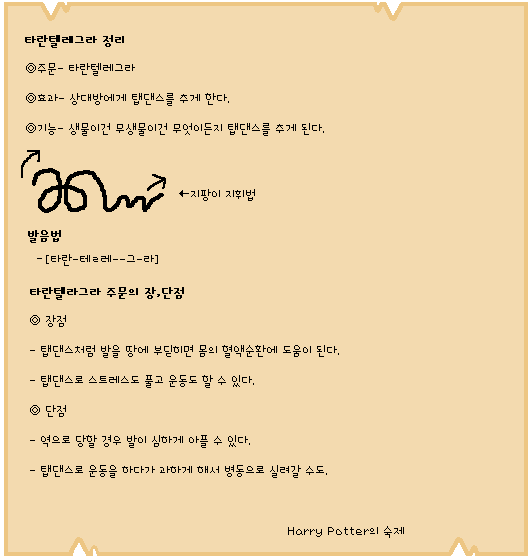 타란텔레그라 정리
◎주문- 타란텔레그라
◎효과- 상대방에게 탭댄스를 추게 한다.
◎기능- 생물이건 무생물이건 무엇이든지 탭댄스를 추게 된다.
←지팡이 지휘법
발음법
-[타란-테ㄹ레--그-라]
타란텔라그라 주문의 장,단점
◎ 장점
- 탭댄스처럼 발을 땅에 부딛히면 몸의 혈액순환에 도움이 된다.
- 탭댄스로 스트레스도 풀고 운동도 할 수 있다.
◎ 단점
- 역으로 당할 경우 발이 심하게 아플 수 있다.
- 탭댄스로 운동을 하다가 과하게 해서 병동으로 실려갈 수도.
Harry Potter의 숙제